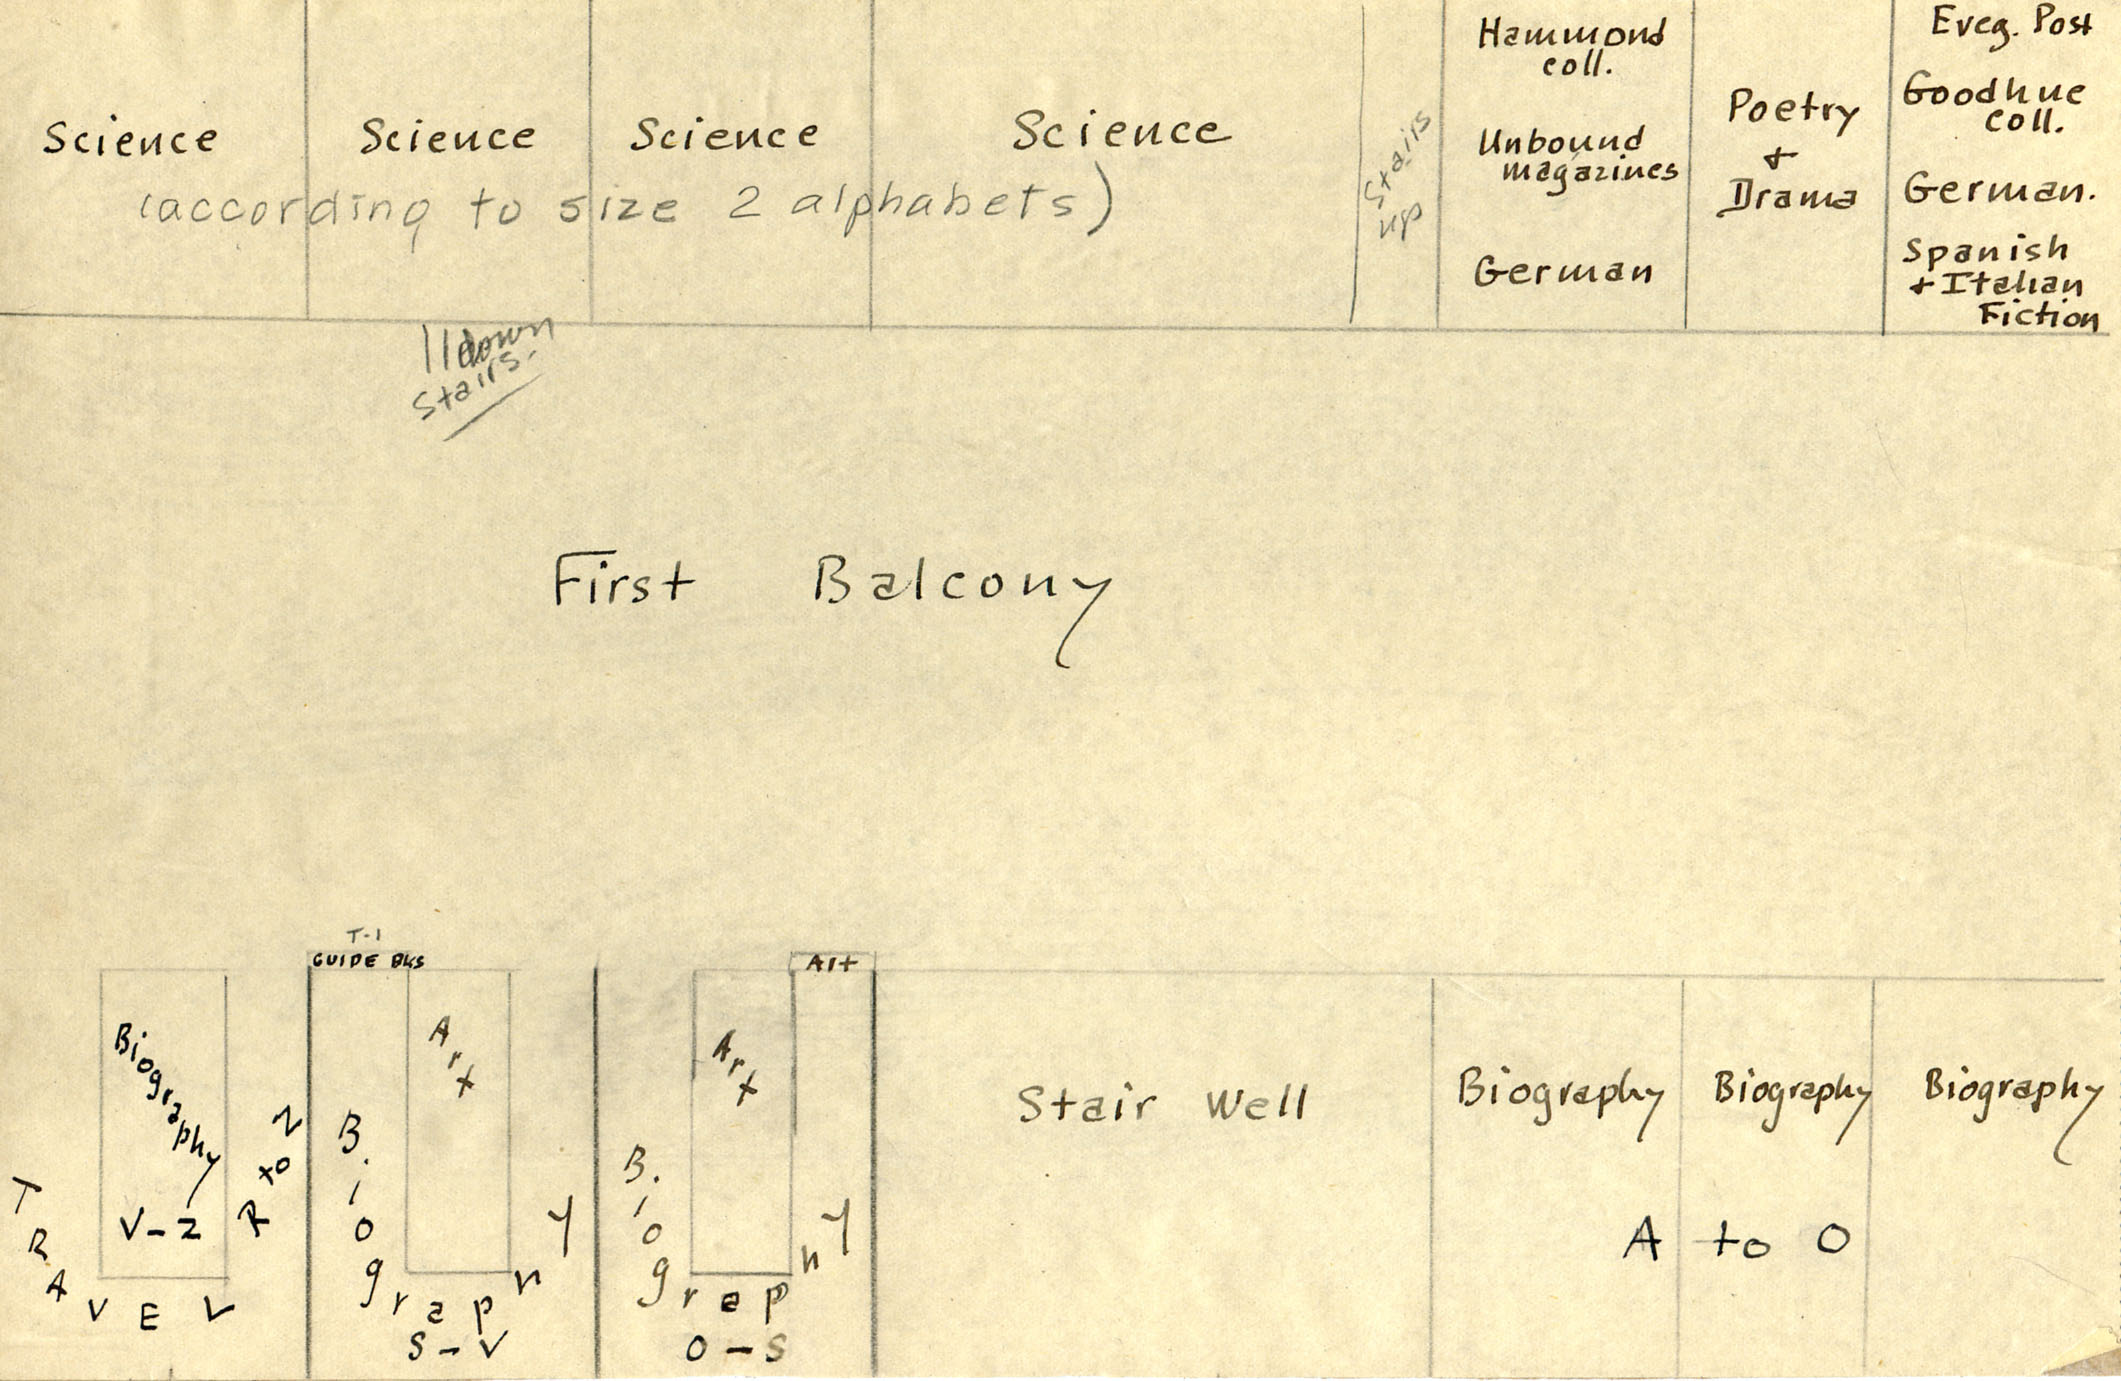 Science
Science
Science
Science
(according to size 2 alphabets)
Stairs
up
Hammond
coll.
Unbound
magazines
German
Poetry
+
Drama
Eveg. Post
Goodhue
coll.
German.
Spanish
+ Italian
Fiction
down
Stairs.
First Balcony
TRAVEL
Biography
V-Z
R to Z
T-1
GUIDE BKS
Art
Biography
S-V
Art
Art
Biography
O-S
Stair Well
Biography
Biography
Biography
A to O